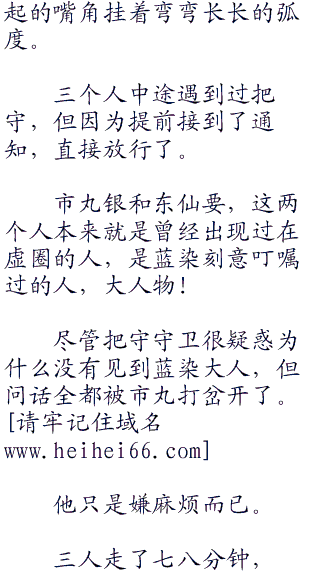 起的嘴角挂着弯弯长长的弧
度。
三个人中途遇到过把
守，但因为提前接到了通
知，直接放行了。
市丸银和东仙要，这两
个人本来就是曾经出现过在
虚圈的人，是蓝染刻意叮嘱
过的人，大人物！
尽管把守守卫很疑惑为
什么没有见到蓝染大人，但
问话全都被市丸打岔开了。
[请牢记住域名
www.heihei66.com]
他只是嫌麻烦而已。
三人走了七八分钟，